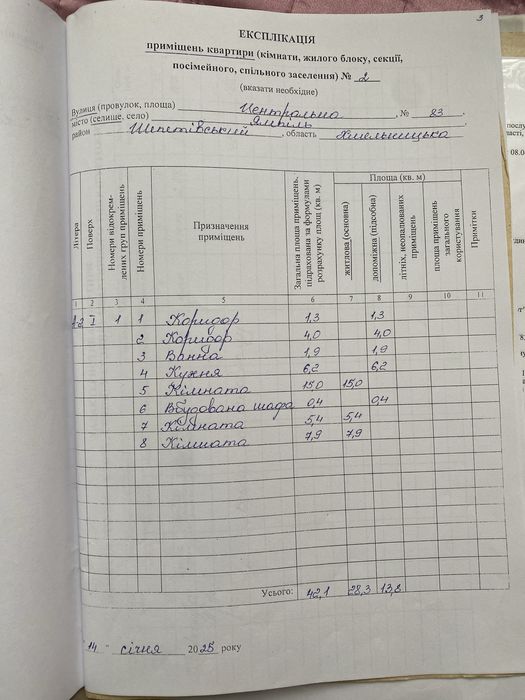 3
ЕКСПЛІКАЦІЯ
приміщень квартири (кімнати, жилого блоку, секції,
посімейного, спільного заселення) № 2
(вказати необхідне)
Вулиця (провулок, площа) Центральна, № 83
місто (селище, село) Ямпіль
район Шепетівський, область Хмельницька
Літера
Поверх
Номери відокрем-
лених груп приміщень
Номери приміщень
Призначення
приміщень
Загальна площа приміщень,
підрахована за формулами
розрахунку площ (кв. м)
Площа (кв. м)
житлова (основна)
допоміжна (підсобна)
літніх, неопалюваних
приміщень
площа приміщень
загального
користування
Примітки
1 2 3 4 5 6 7 8 9 10 11
А-2 I 1 1 Коридор 1,3 1,3
2 Коридор 4,0 4,0
3 Ванна 1,9 1,9
4 Кухня 6,2 6,2
5 Кімната 15,0 15,0
6 Вбудована шафа 0,4 0,4
7 Кімната 5,4 5,4
8 Кімната 7,9 7,9
Усього: 42,1 28,3 13,8
"14" січня 2025 року